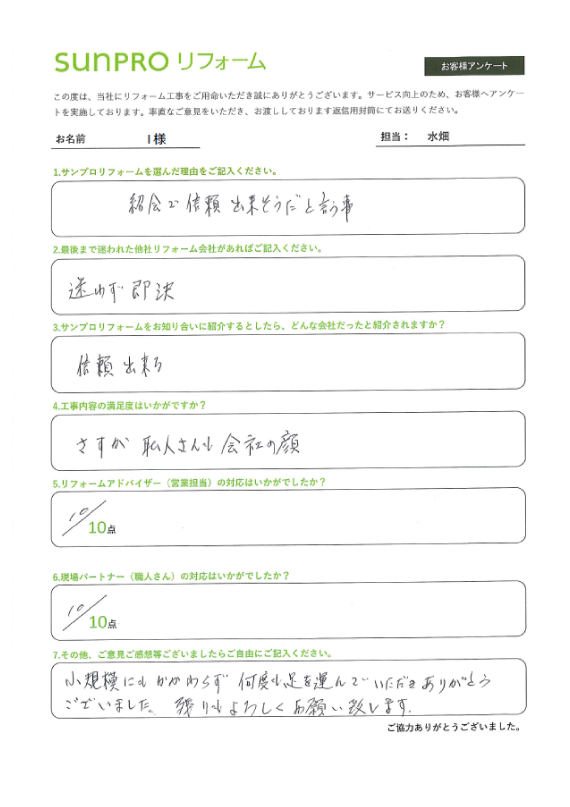 SUNPRO リフォーム
お客様アンケート
この度は、当社にリフォーム工事をご用命いただき誠にありがとうございます。サービス向上のため、お客様へアンケー
トを実施しております。率直なご意見をいただき、お渡ししております返信用封筒にてお送りください。
お名前 I 様 担当： 水畑
1.サンプロリフォームを選んだ理由をご記入ください。
紹介で信頼出来そうだと言う事
2.最後まで迷われた他社リフォーム会社があればご記入ください。
迷わず即決
3.サンプロリフォームをお知り合いに紹介するとしたら、どんな会社だったと紹介されますか？
信頼出来る
4.工事内容の満足度はいかがですか？
さすが 職人さんも会社の顔
5.リフォームアドバイザー（営業担当）の対応はいかがでしたか？
10/10点
6.現場パートナー（職人さん）の対応はいかがでしたか？
10/10点
7.その他、ご意見ご感想等ございましたらご自由にご記入ください。
小規模にもかかわらず 何度も足を運んでいただきありがとう
ございました。残りもよろしくお願い致します。
ご協力ありがとうございました。